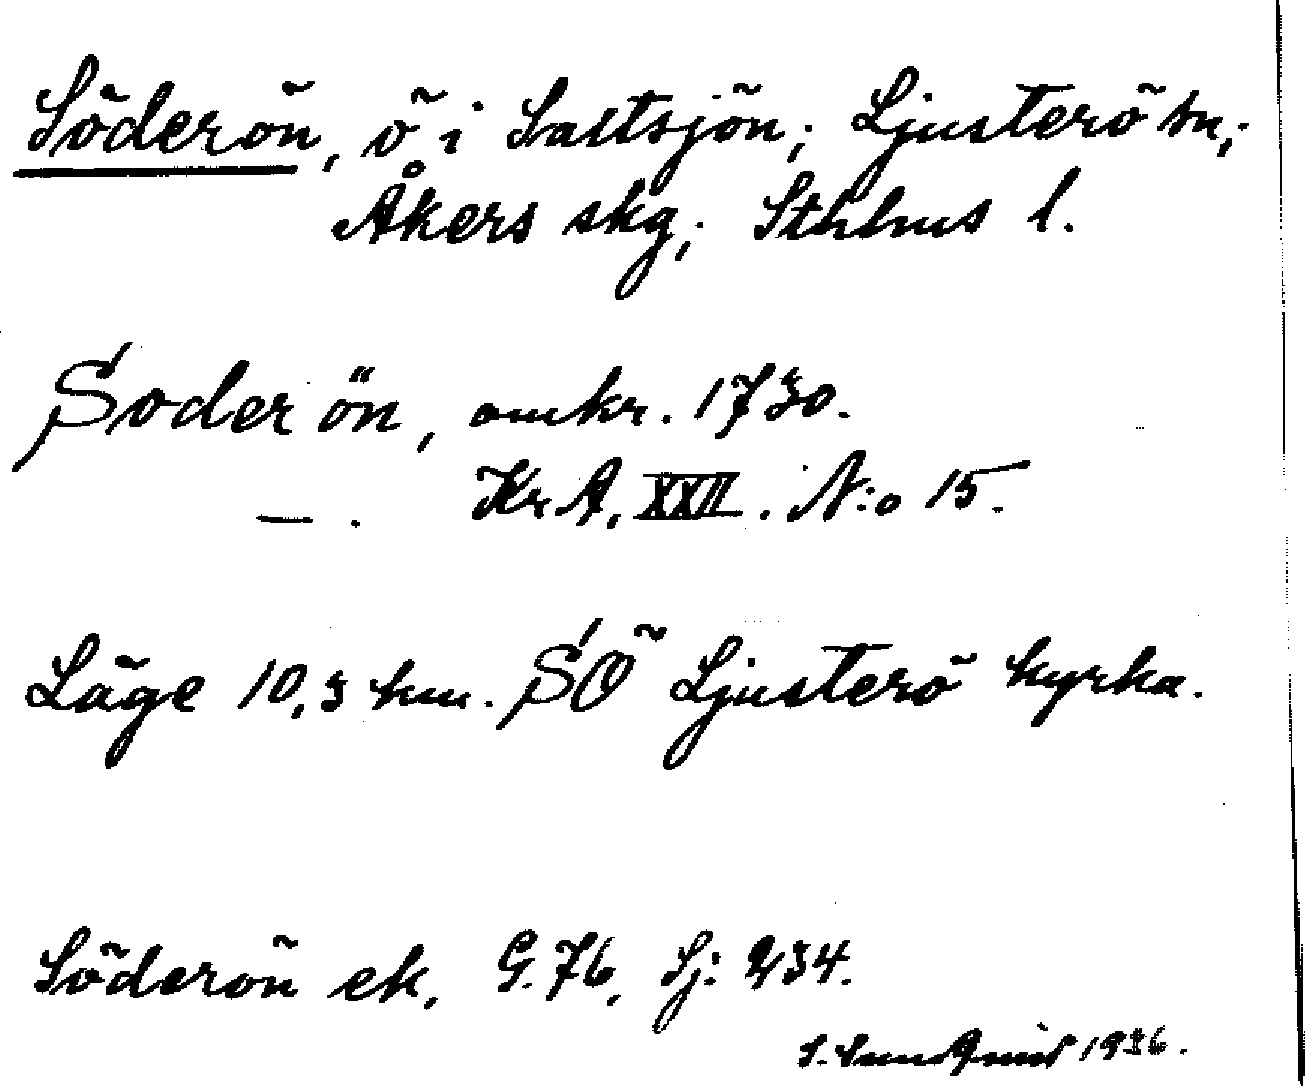 Söderön, ö i Saltsjön; Ljusterö sn;
Åkers skg; Sthlms l.
Soder ön, omkr. 1730.
— . Kr. A. XXII. N:o 15.
Läge 10,3 km. SÖ Ljusterö kyrka.
Söderön ek. G. 76, Sj: 234.
S. 1936.